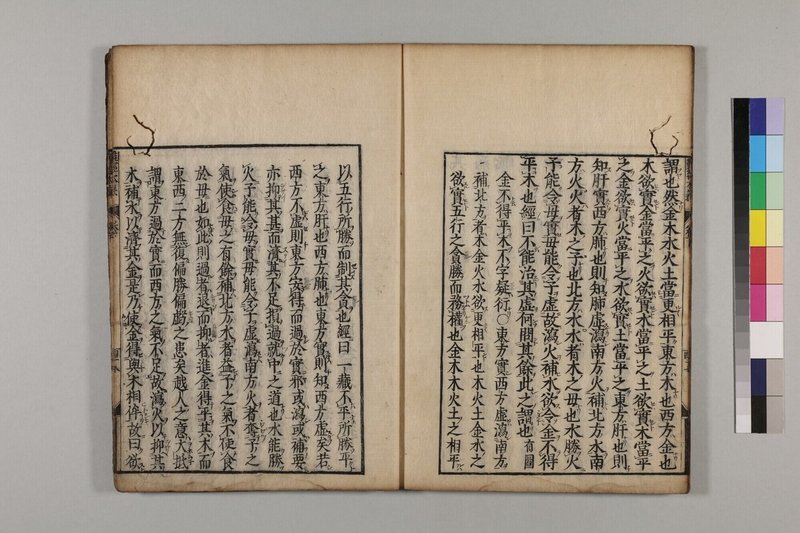 謂也然金木水火土當更相平東方木也西方金也
木欲實金當平之火欲實水當平之土欲實木當平
之金欲實火當平之水欲實土當平之東方肝也則
知肝實西方肺也則知肺虛瀉南方火補北方水南
方火火者木之子也北方水水者木之母也水勝火
子能令母實母能令子虛故瀉火補水欲令金不得
平木也經曰不能治其虛何問其餘此之謂也
金不得平木不字疑衍東方實西方虛瀉南方
補北方者木金火水欲更相平也木火土金水之
欲實五行之貪勝而務權也金水木火土之相平
以五行所勝而制其貪也經曰一藏不平所勝平
之東方肝也西方肺也東方實則知西方虛矣若
西方不虛則東方安得而過於實邪或瀉或補要
亦抑其甚而濟其不足損過就中之道也水能勝
火子能令母實母能令子虛瀉南方火者奪子之
氣使食母之有餘補北方水者益子之氣不使食
於母也如此則過者退而抑者進金得平其木而
東西二方無復偏勝偏虧之患矣越人之意大抵
謂東方過於實而西方之氣不足故瀉火以抑其
木補水以濟其金是乃使金得與木相停故曰欲